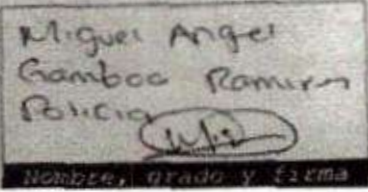 Miguel Angel
Gamboa Ramirez
Policia
Nombre, grado y firma